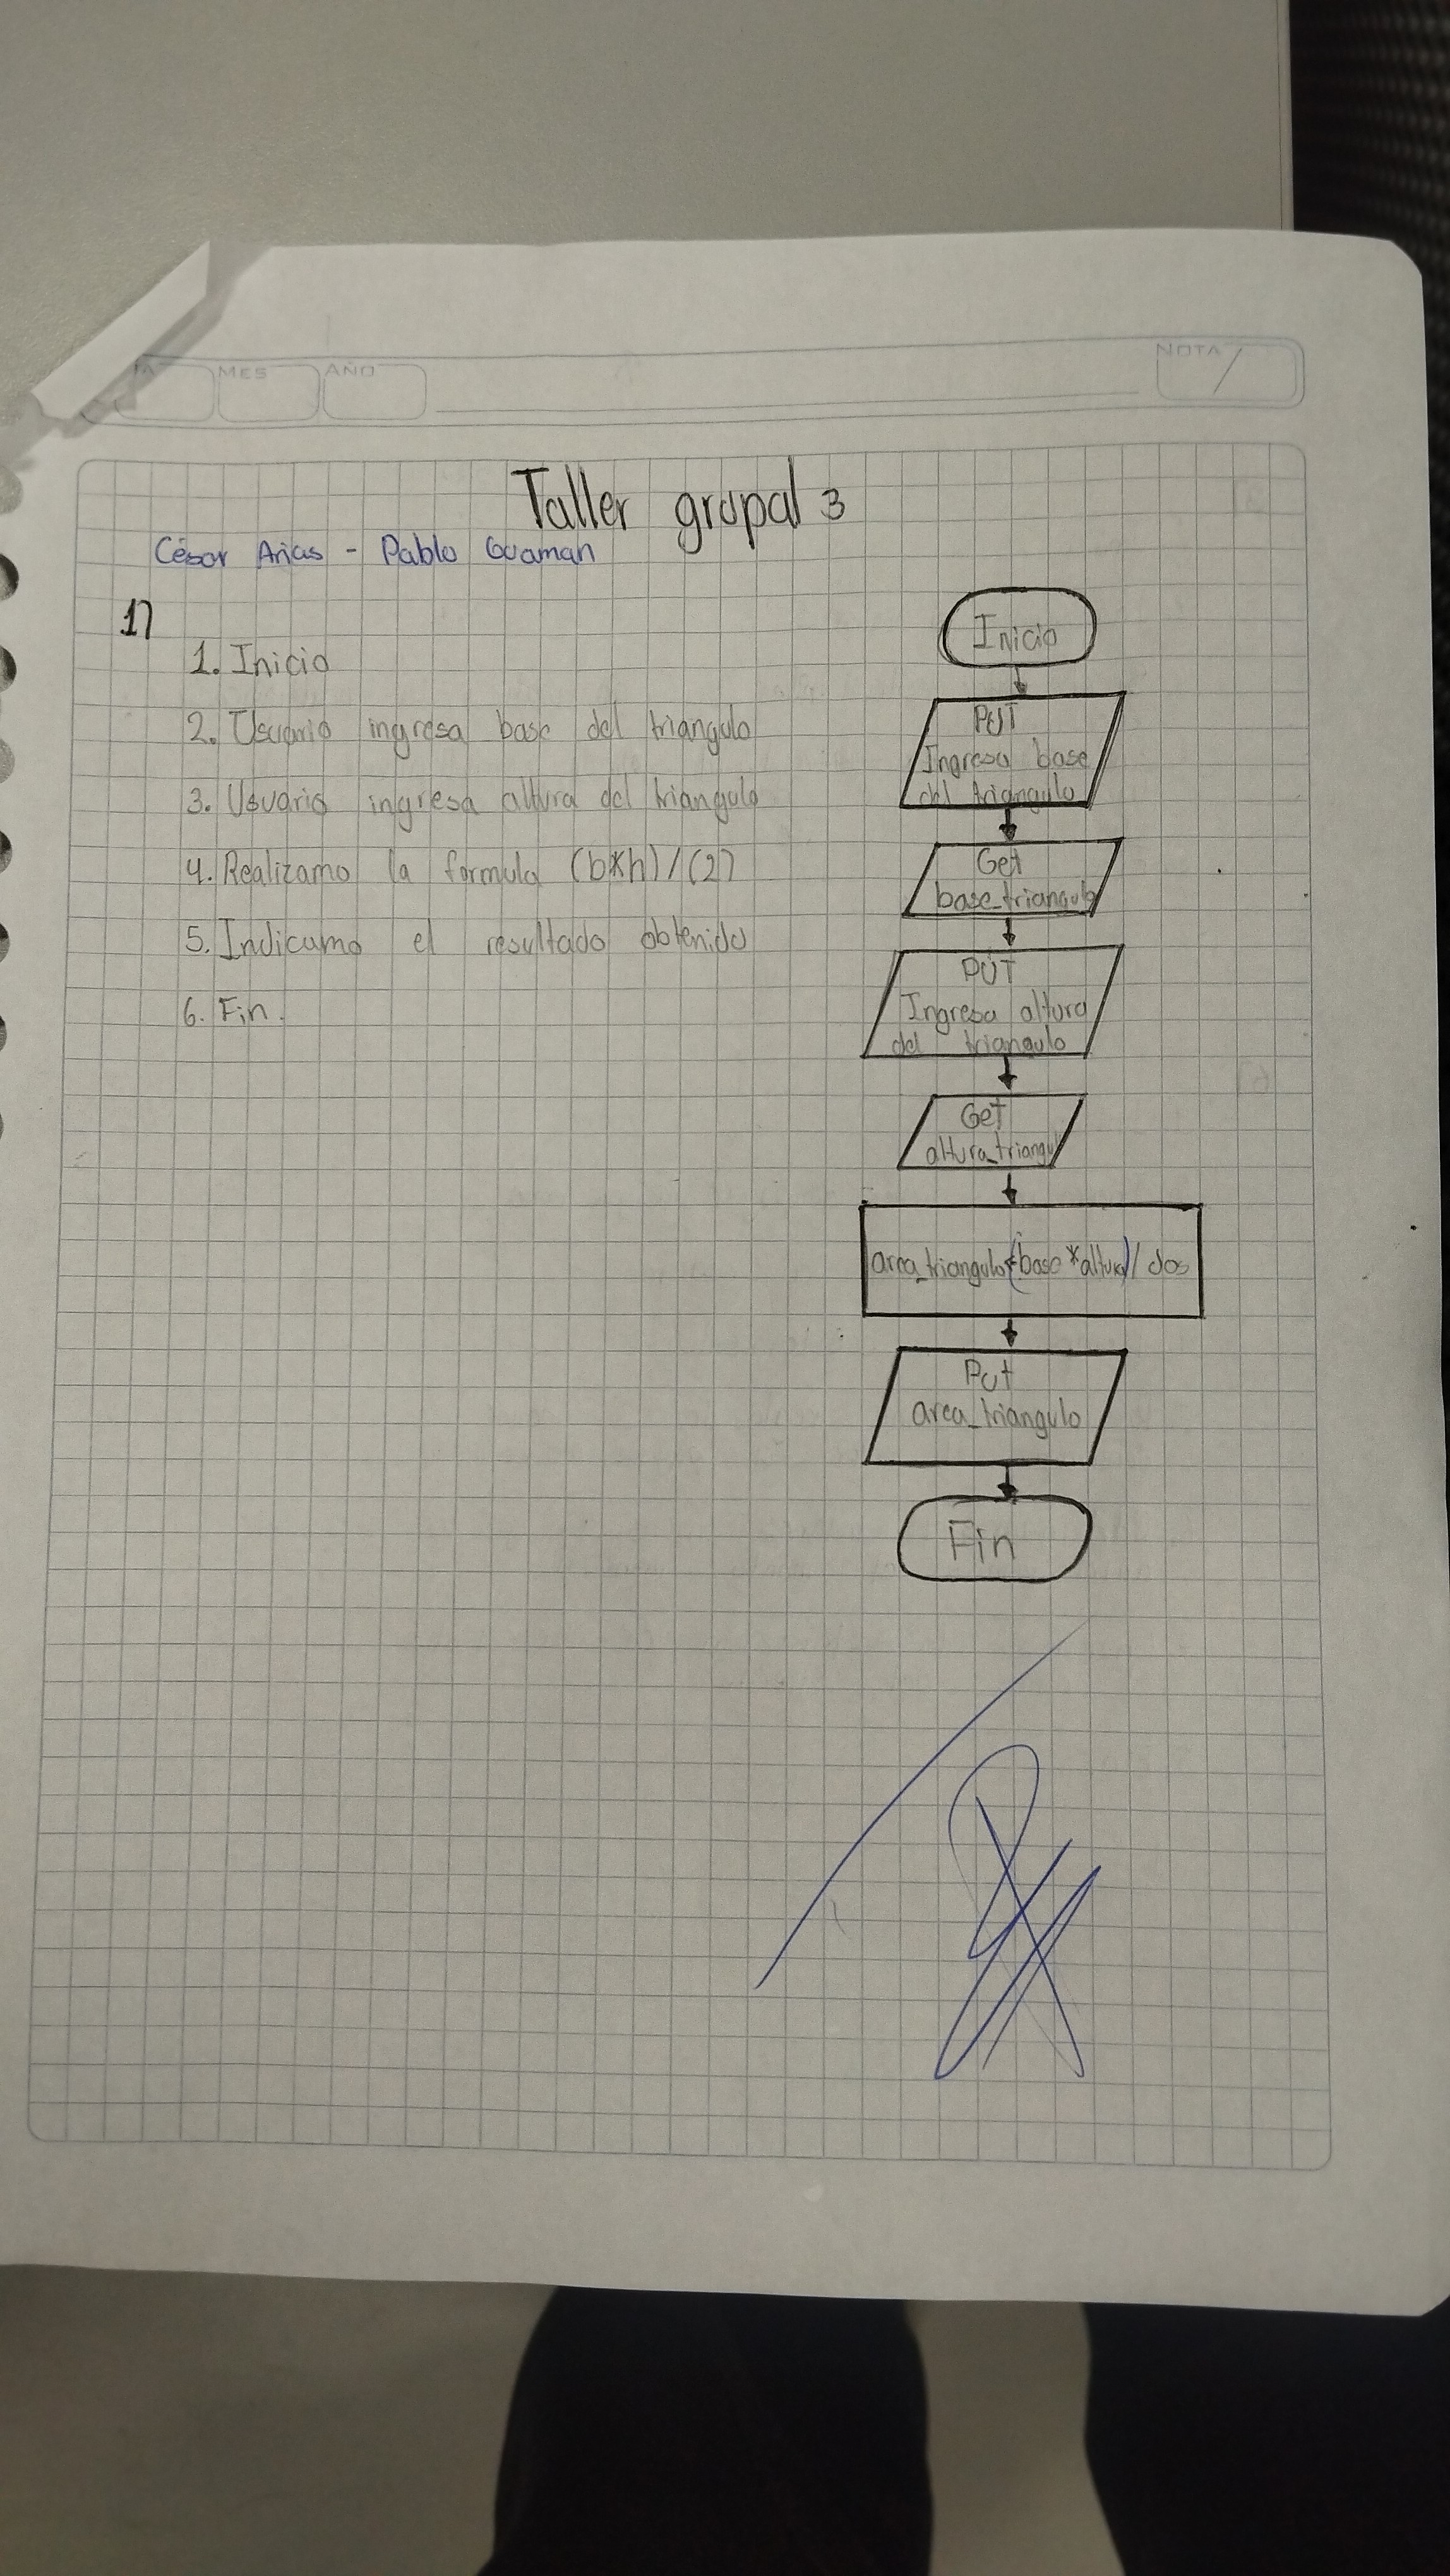 MES
AÑO
NOTA
Taller grupal 3
César Arias - Pablo Guaman
1)
1. Inicio
2. Usuario ingresa base del triangulo
3. Usuario ingresa altura del triangulo
4. Realizamo la formula (b*h)/(2)
5. Indicamo el resultado obtenido
6. Fin.
Inicio
PUT
Ingresa base
del triangulo
Get
base_triangulo
PUT
Ingresa altura
del triangulo
Get
altura_triangu
area_triangulo=(base*altura)/dos
Put
area_triangulo
Fin